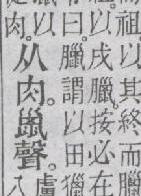 祖以其終而臘
以戌臘。按必在
曰。臘謂以田獵
以
肉。
从肉。巤聲。
盧
入